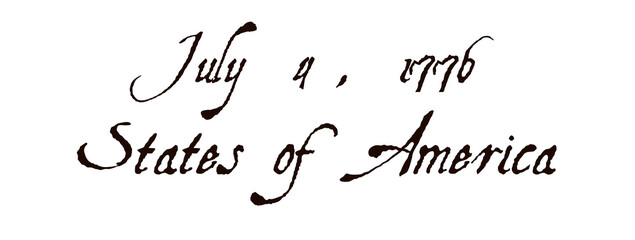 July 4, 1776
States of America